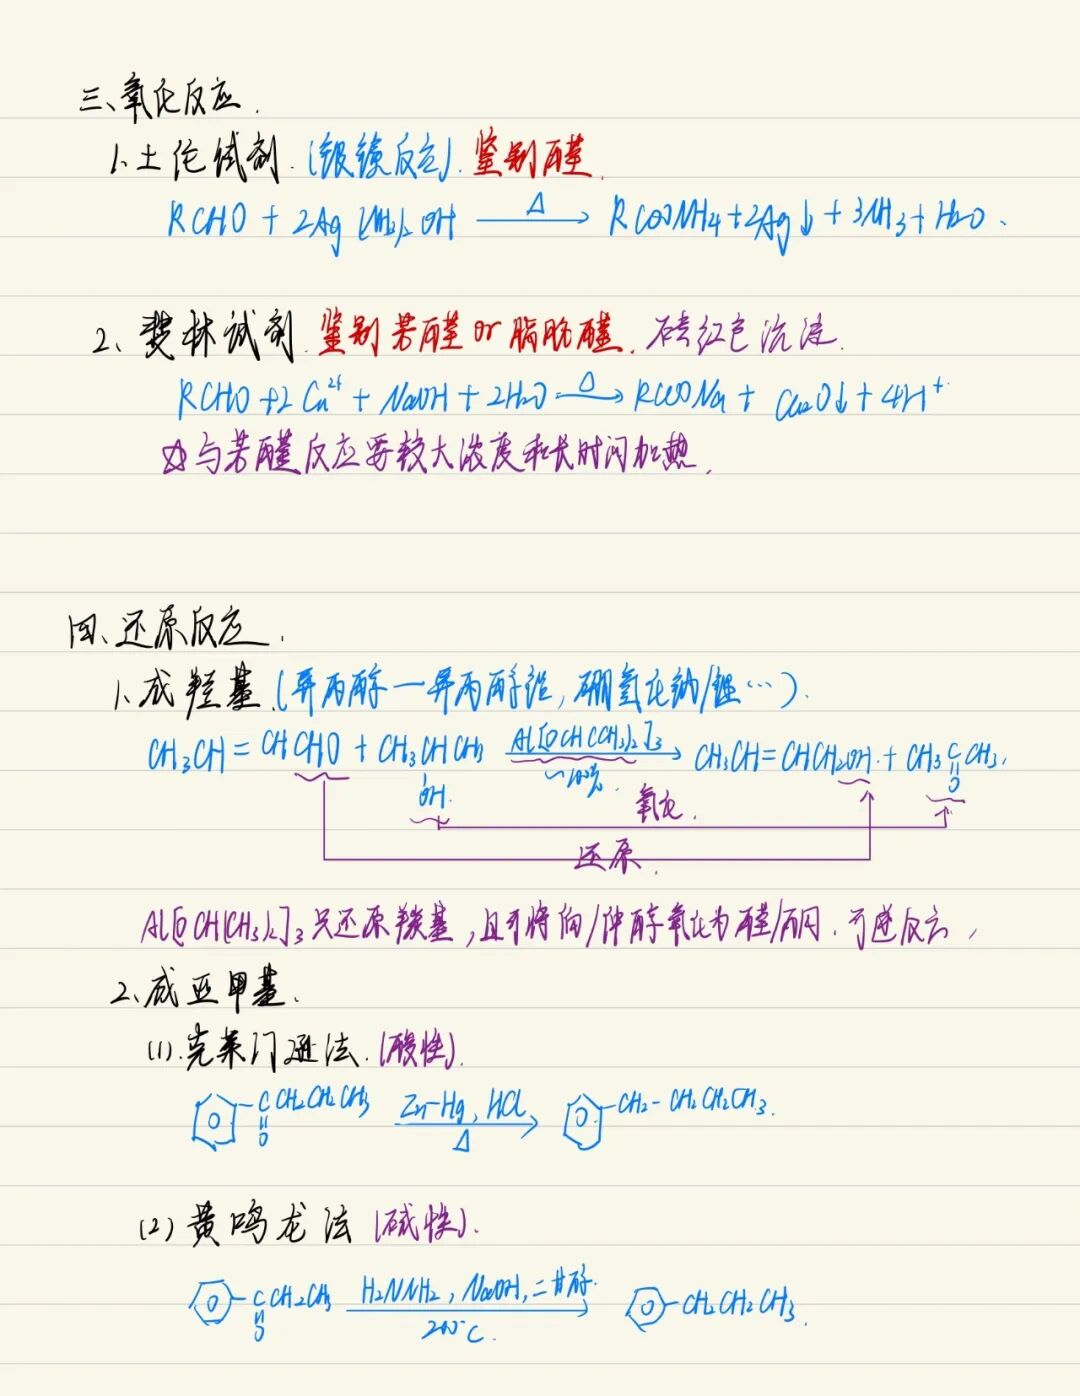 三、氧化反应.
1、土伦试剂.(银镜反应).鉴别醛.
RCHO + 2Ag(NH3)2OH —Δ→ RCOONH4+2Ag↓+3NH3+H2O.
2、斐林试剂.鉴别芳醛or脂肪醛.砖红色沉淀.
RCHO+2Cu²⁺+NaOH+2H2O —Δ→ RCOONa+Cu2O↓+4H⁺
☆与芳醛反应要较大浓度和长时间加热.
四、还原反应.
1、成羟基.(异丙醇一异丙醇铝,硼氢化钠/锂…).
CH3CH=CHCHO + CH3CHCH3 Al[OCH(CH3)2]3 → CH3CH=CHCH2OH + CH3CCH3.
OH. ~100%. O
氧化.
还原.
Al[OCH(CH3)2]3只还原羰基,且可将伯/仲醇氧化为醛/酮.可逆反应,
2、成亚甲基.
(1).克莱门逊法.(酸性).
CCH2CH2CH3 Zn-Hg,HCl → CH2-CH2CH2CH3.
O Δ
(2)黄鸣龙法(碱性).
CCH2CH3 H2NNH2,NaOH,二甘醇. → CH2CH2CH3.
O 200℃.